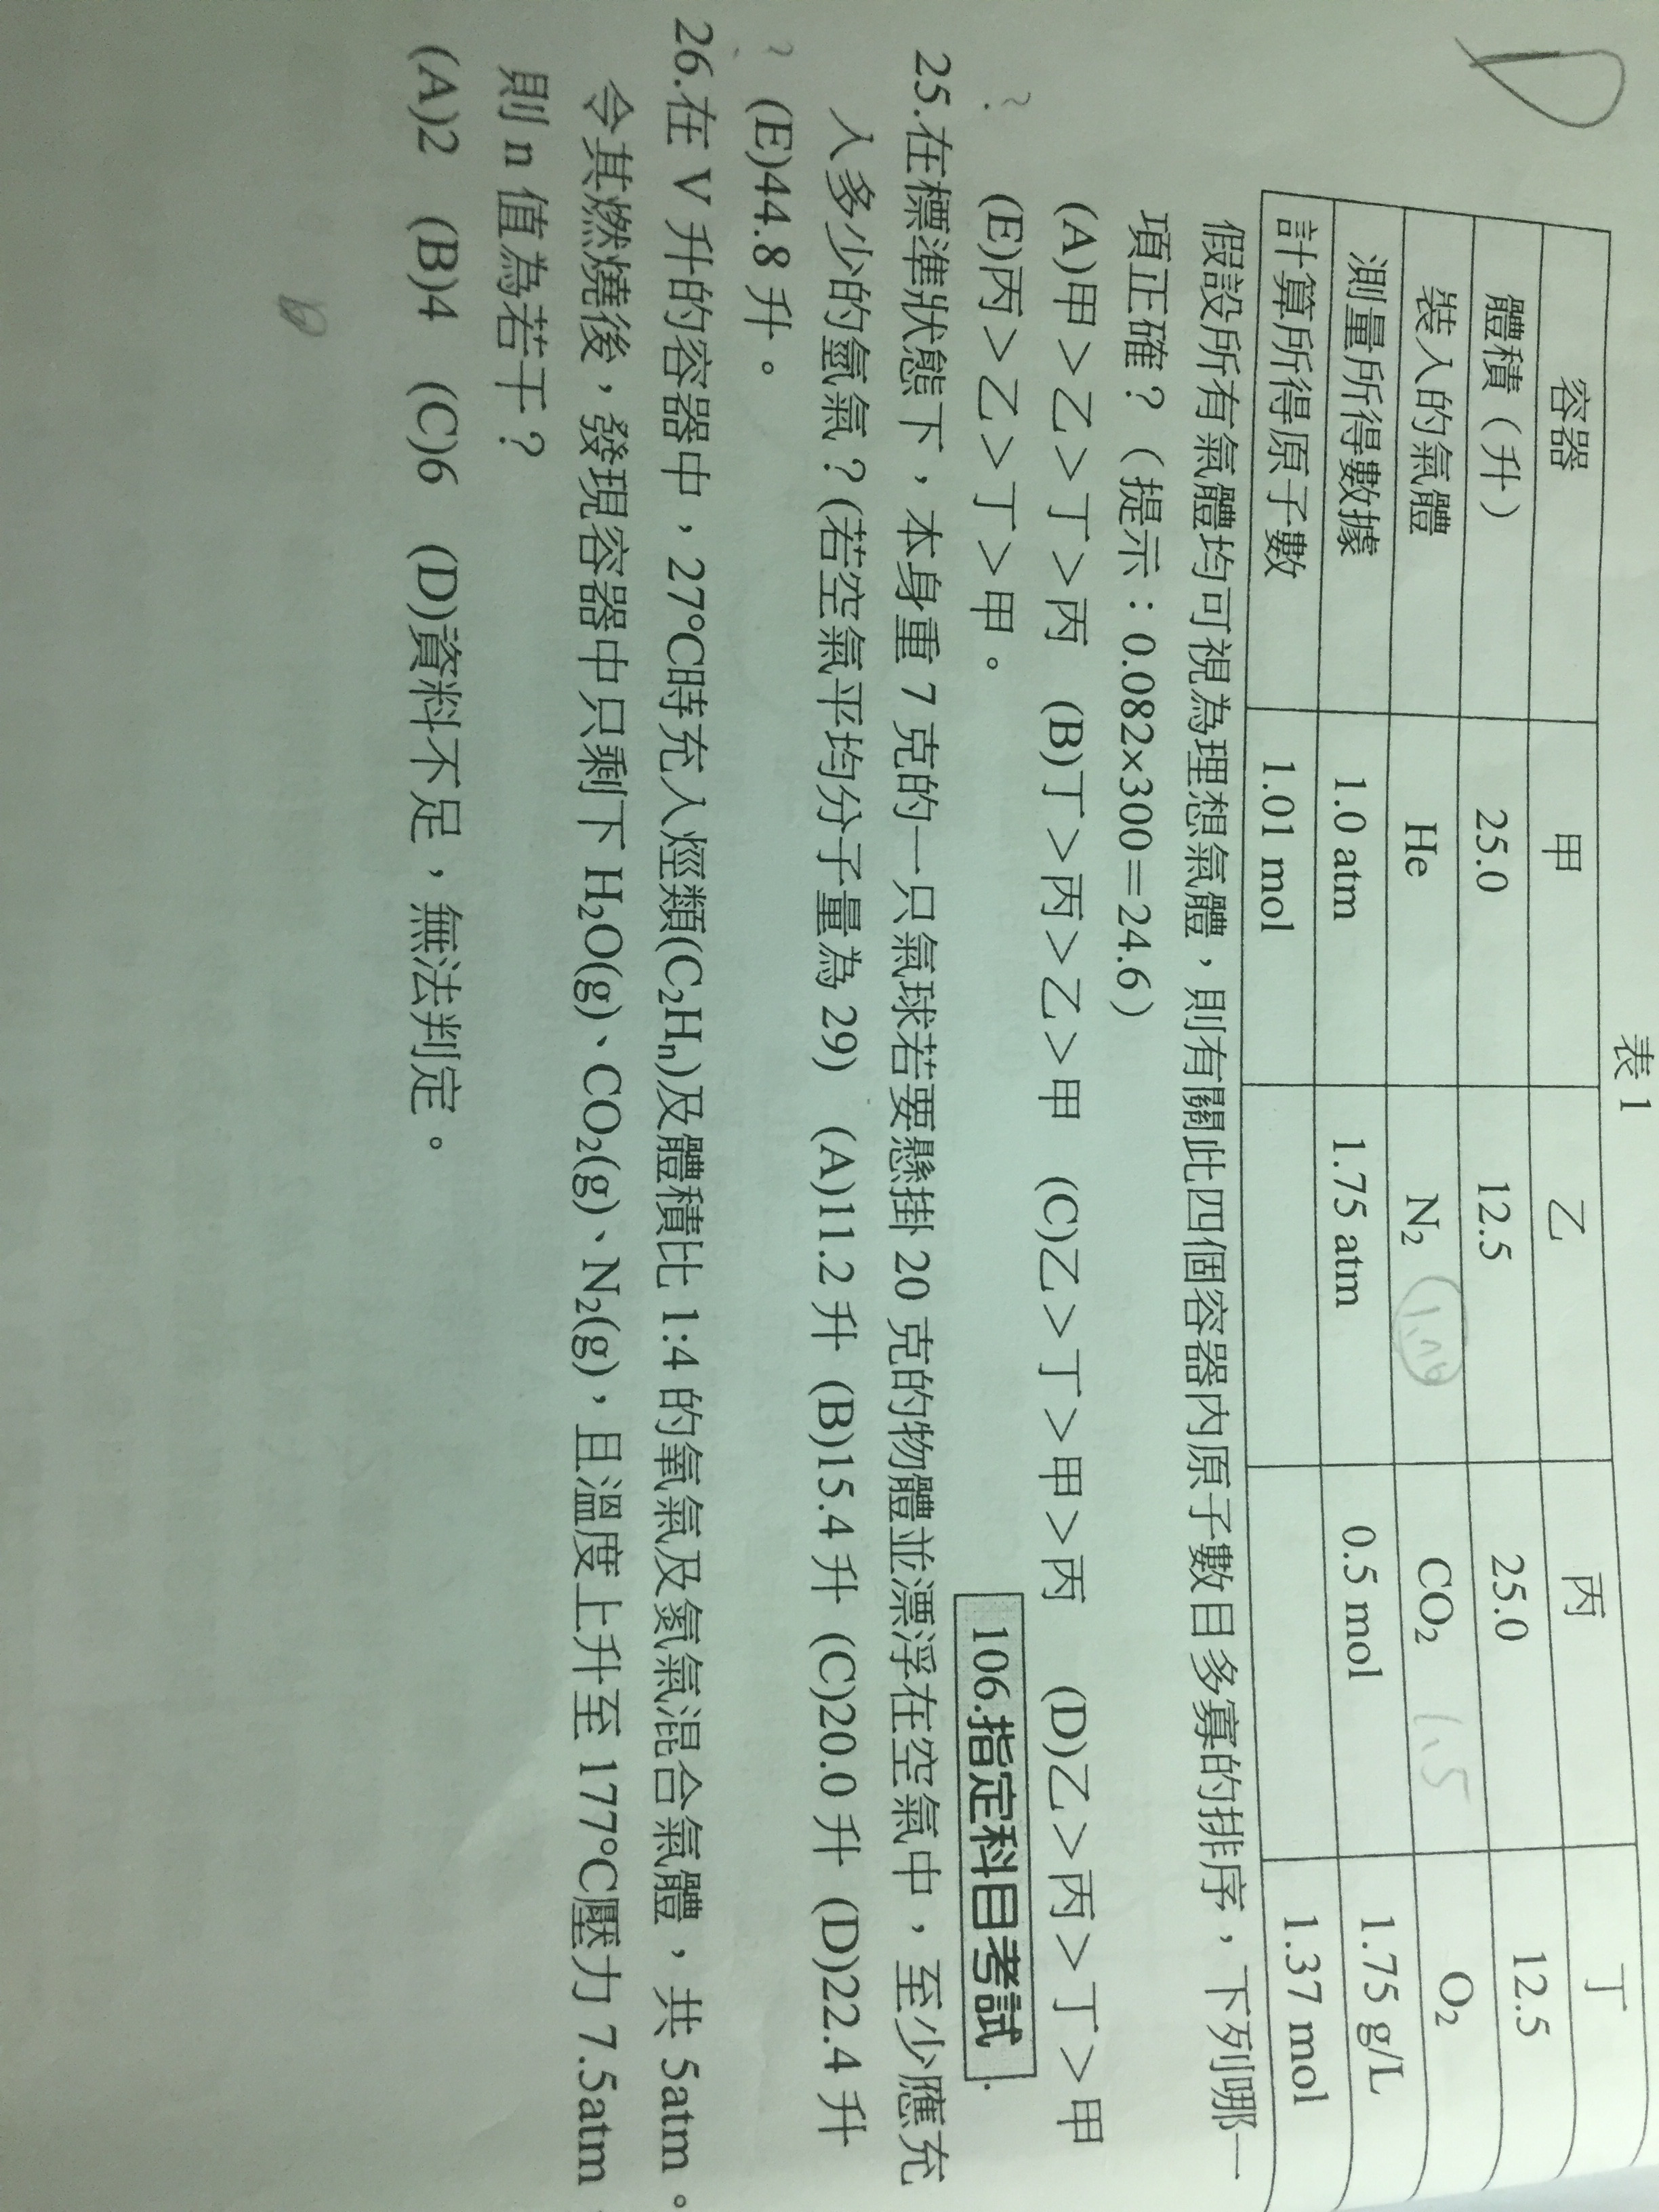 表 1
容器 甲 乙 丙 丁
體積（升） 25.0 12.5 25.0 12.5
裝入的氣體 He N₂ CO₂ 1.5 O₂
測量所得數據 1.0 atm 1.75 atm 0.5 mol 1.75 g/L
計算所得原子數 1.01 mol 1.37 mol
假設所有氣體均可視為理想氣體，則有關此四個容器內原子數目多寡的排序，下列哪一
項正確？（提示：0.082×300＝24.6）
(A)甲＞乙＞丁＞丙 (B)丁＞丙＞乙＞甲 (C)乙＞丁＞甲＞丙 (D)乙＞丙＞丁＞甲
(E)丙＞乙＞丁＞甲。
106.指定科目考試
25.在標準狀態下，本身重 7 克的一只氣球若要懸掛 20 克的物體並漂浮在空氣中，至少應充
入多少的氫氣？(若空氣平均分子量為 29) (A)11.2 升 (B)15.4 升 (C)20.0 升 (D)22.4 升
(E)44.8 升。
26.在 V 升的容器中，27°C時充入烴類(C₂Hₙ)及體積比 1:4 的氧氣及氮氣混合氣體，共 5atm。
令其燃燒後，發現容器中只剩下 H₂O(g)、CO₂(g)、N₂(g)，且溫度上升至 177°C壓力 7.5atm
則 n 值為若干？
(A)2 (B)4 (C)6 (D)資料不足，無法判定。